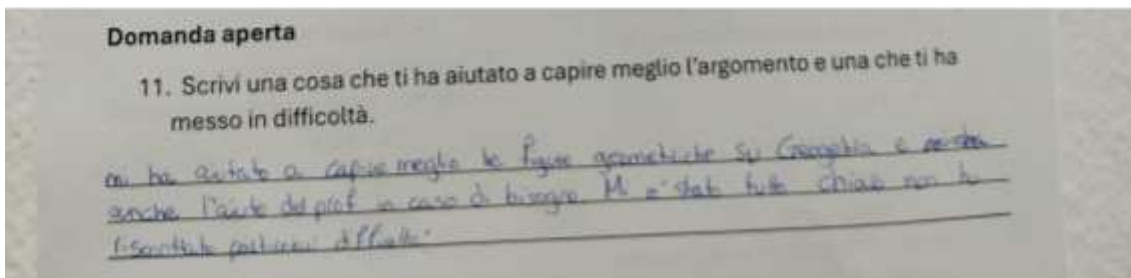 Domanda aperta
11. Scrivi una cosa che ti ha aiutato a capire meglio l'argomento e una che ti ha
messo in difficoltà.
mi ha aiutato a capire meglio le figure geometriche su Geogebra e
anche l'aiuto del prof in caso di bisogno Mi è stato tutto chiaro non ho
riscontrato particolari difficoltà.